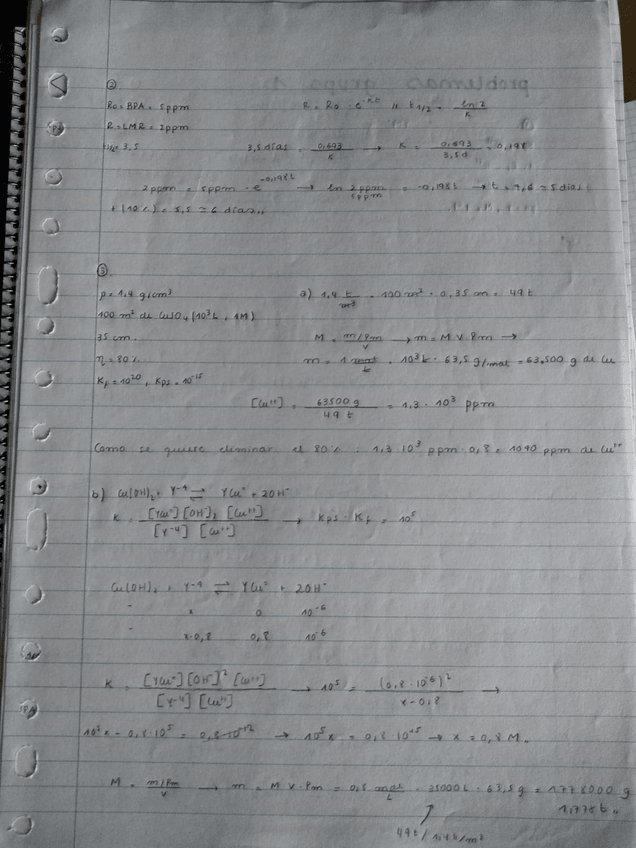 ②
R₀ = BPA = 5ppm R = R₀ · e^-Kt // t 1/2 = ln 2 / K
R = LMR = 2ppm
t1/2 = 3,5 3,5 días = 0,693 / K → K = 0,693 / 3,5 d = 0,198
2 ppm = 5ppm · e^-0,198t → ln 2 ppm / 5 ppm = -0,198t → t = 4,6 ≈ 5 días
t (10%) = 5,5 ≈ 6 días //
③.
ρ = 1,4 g/cm³ a) 1,4 t/m³ · 100 m² · 0,35 m = 49 t
100 m² de CuSO₄ (10³ L, 1M)
35 cm. M = m/Pm / V → m = M V Pm →
η = 80% m = 1 mol/L · 10³ L · 63,5 g/mol = 63.500 g de Cu
Kf = 10²⁰, Kps = 10⁻¹⁵
[Cu⁺⁺] = 63500 g / 49 t = 1,3 · 10³ ppm
Como se quiere eliminar el 80% : 1,3·10³ ppm · 0,8 = 1040 ppm de Cu⁺⁺
b) Cu(OH)₂ + Y⁻⁴ ⇌ YCu⁼ + 2OH⁻
K = [YCu⁼] [OH⁻]² [Cu⁺⁺] / [Y⁻⁴] [Cu⁺⁺] → Kps · Kf = 10⁵
Cu(OH)₂ + Y⁻⁴ ⇌ YCu⁼ + 2OH⁻
- x 0 10⁻⁶
- x-0,8 0,8 10⁻⁶
K = [YCu⁼] [OH⁻]² [Cu⁺⁺] / [Y⁻⁴] [Cu⁺⁺] → 10⁵ = (0,8 · 10⁻⁶)² / x-0,8 →
10⁵x - 0,8·10⁵ = 0,8·10⁻¹² → 10⁵x = 0,8·10⁵ → x = 0,8 M.
M = m/Pm / V → m = M V · Pm = 0,8 mol/L · 35000 L · 63,5 g = 1778000 g
1,778 t //
49 t / 1,4 t/m³